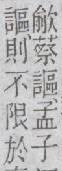 歈蔡謳孟子
謳則不限於